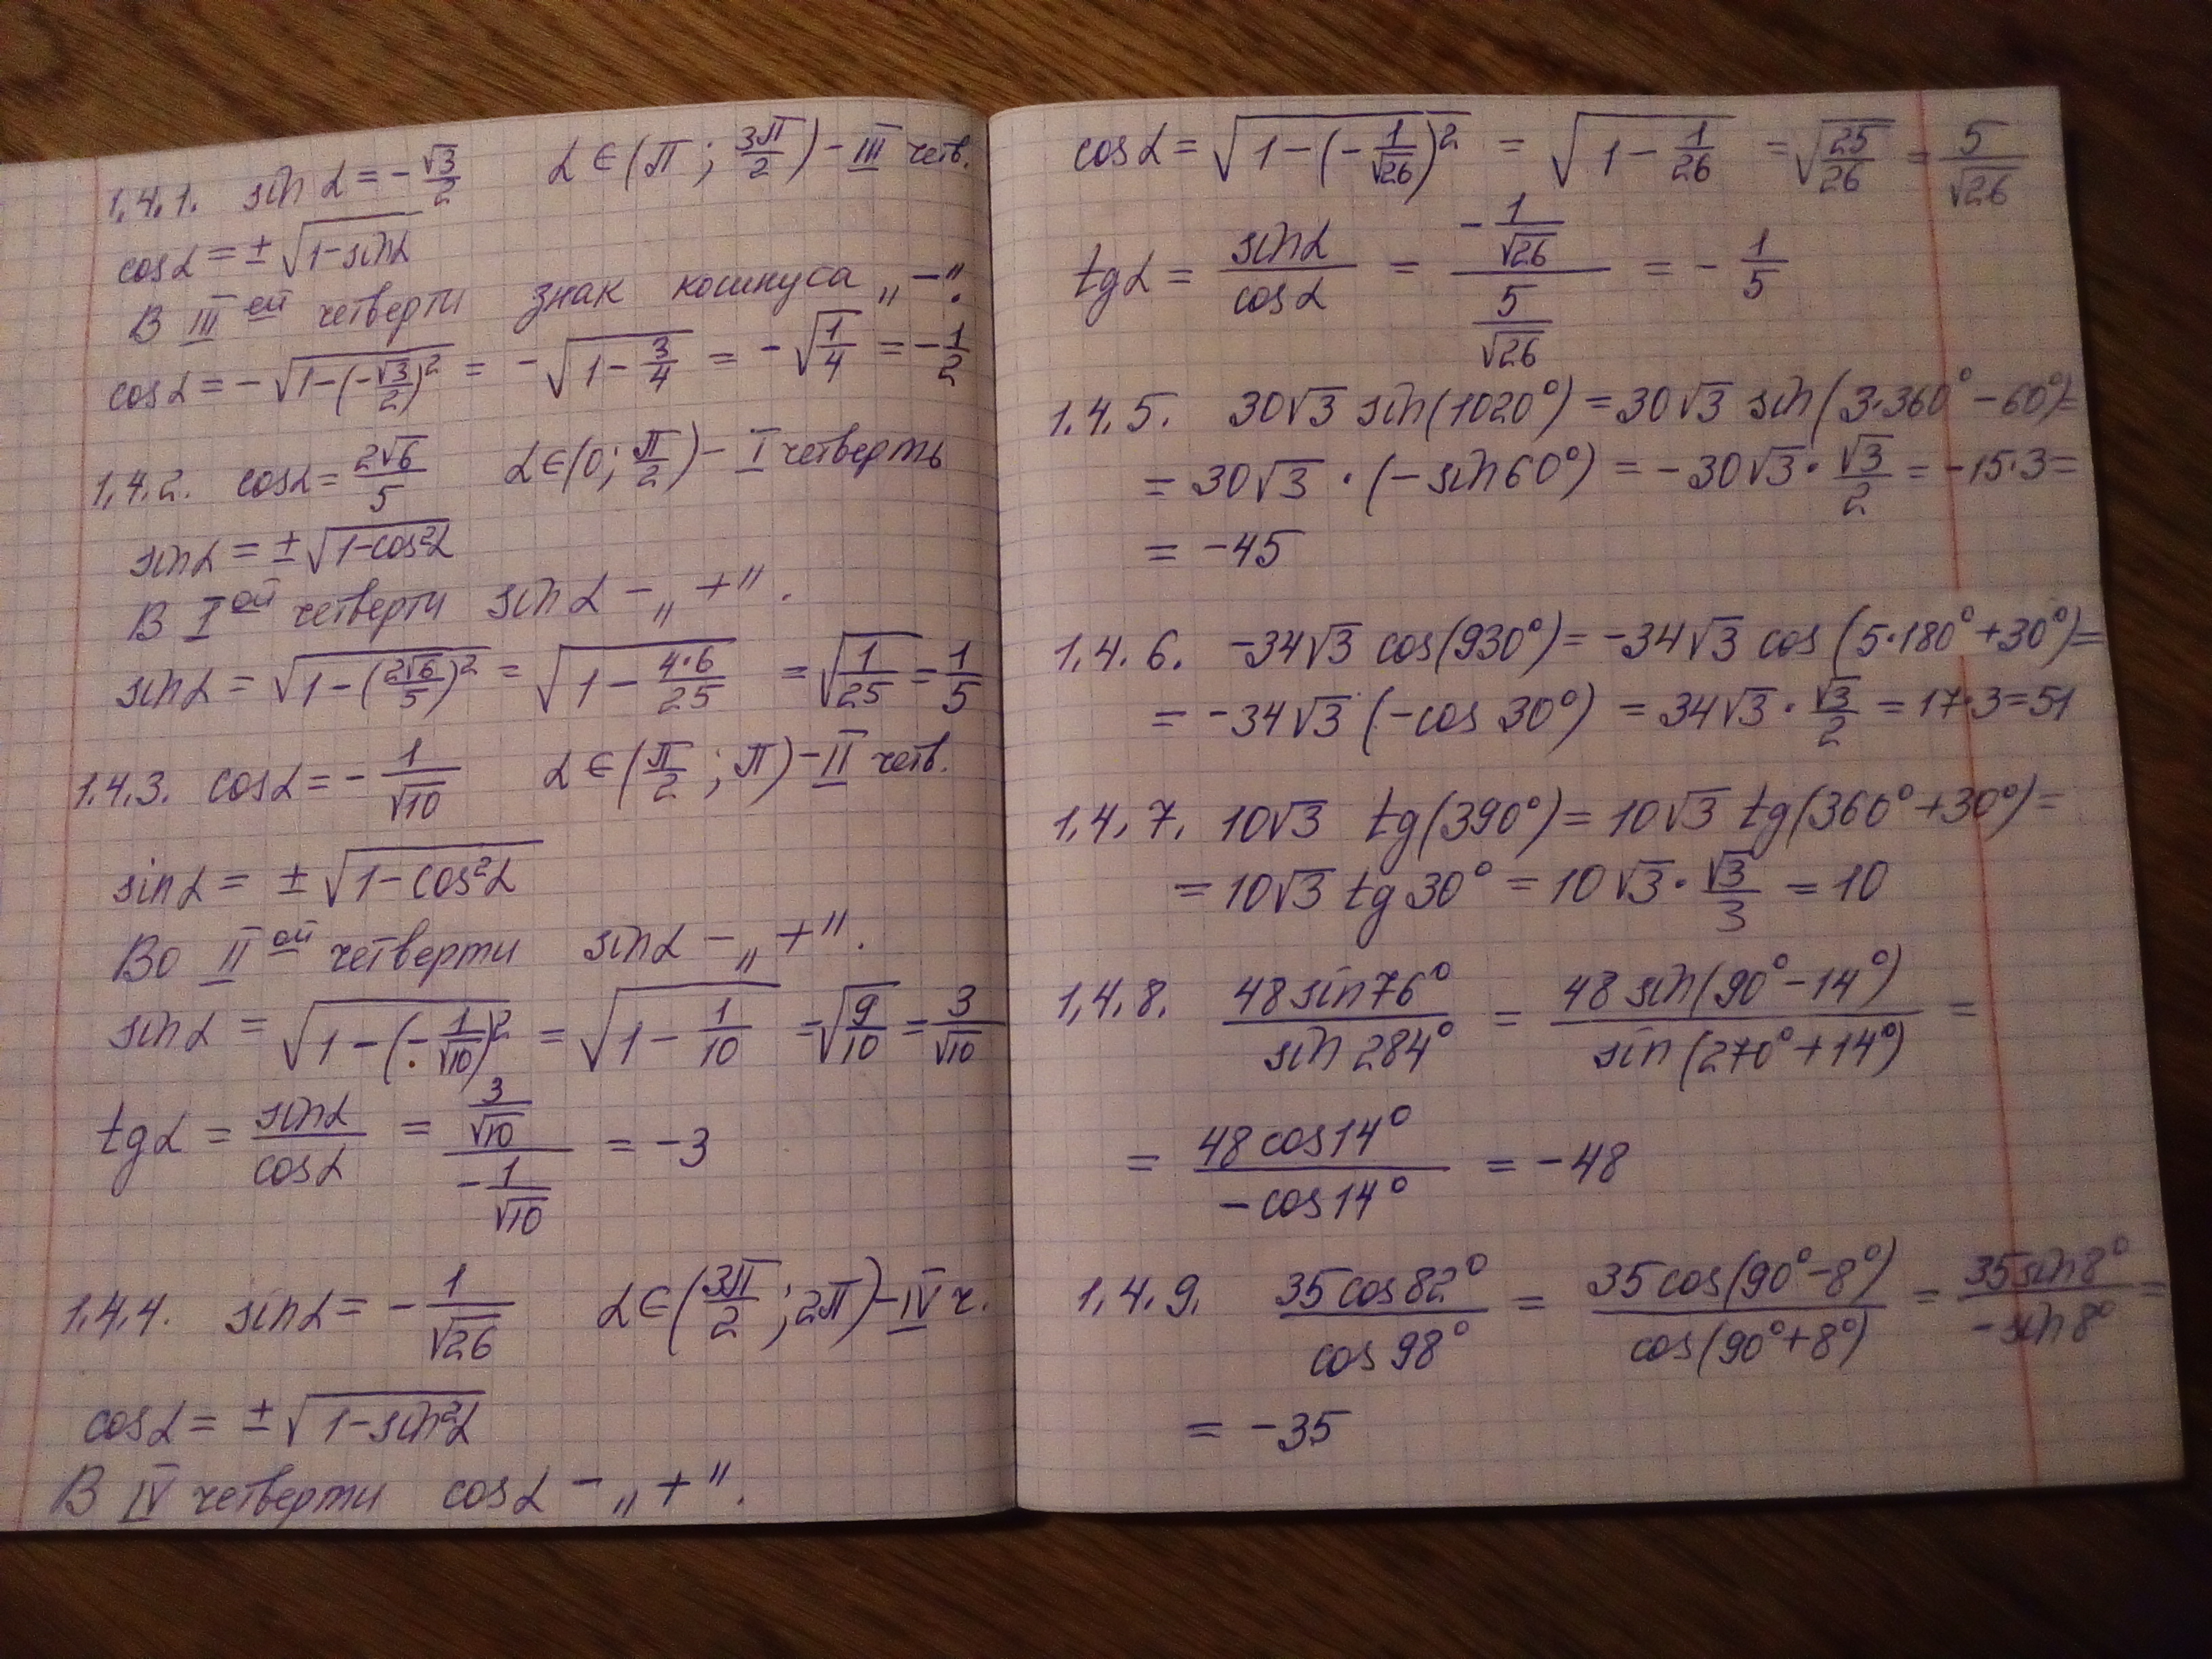 1.4.1. sin α = -√3/2 α∈(π; 3π/2) - III четв.
cos α = ±√(1-sin α)
В III ей четверти знак косинуса „-".
cos α = -√(1-(-√3/2)²) = -√(1-3/4) = -√(1/4) = -1/2
1.4.2. cos α = 2√6/5 α∈(0; π/2) - I четверть
sin α = ±√(1-cos²α)
В I ой четверти sin α - „+".
sin α = √(1-(2√6/5)²) = √(1-4·6/25) = √(1/25) = 1/5
1.4.3. cos α = -1/√10 α∈(π/2; π) - II четв.
sin α = ±√(1-cos²α)
Во II ой четверти sin α - „+".
sin α = √(1-(-1/√10)²) = √(1-1/10) = √(9/10) = 3/√10
tg α = sin α/cos α = (3/√10)/(-1/√10) = -3
1.4.4. sin α = -1/√26 α∈(3π/2; 2π) - IV ч.
cos α = ±√(1-sin²α)
В IV четверти cos α - „+".
cos α = √(1-(-1/√26)²) = √(1-1/26) = √(25/26) = 5/√26
tg α = sin α/cos α = (-1/√26)/(5/√26) = -1/5
1.4.5. 30√3 sin(1020°) = 30√3 sin(3·360°-60°) =
= 30√3 · (-sin 60°) = -30√3 · √3/2 = -15·3 =
= -45
1.4.6. -34√3 cos(930°) = -34√3 cos(5·180°+30°) =
= -34√3 (-cos 30°) = 34√3 · √3/2 = 17·3 = 51
1.4.7. 10√3 tg(390°) = 10√3 tg(360°+30°) =
= 10√3 tg 30° = 10√3 · √3/3 = 10
1.4.8. 48 sin 76°/sin 284° = 48 sin(90°-14°)/sin(270°+14°) =
= 48 cos 14°/-cos 14° = -48
1.4.9. 35 cos 82°/cos 98° = 35 cos(90°-8°)/cos(90°+8°) = 35 sin 8°/-sin 8° =
= -35